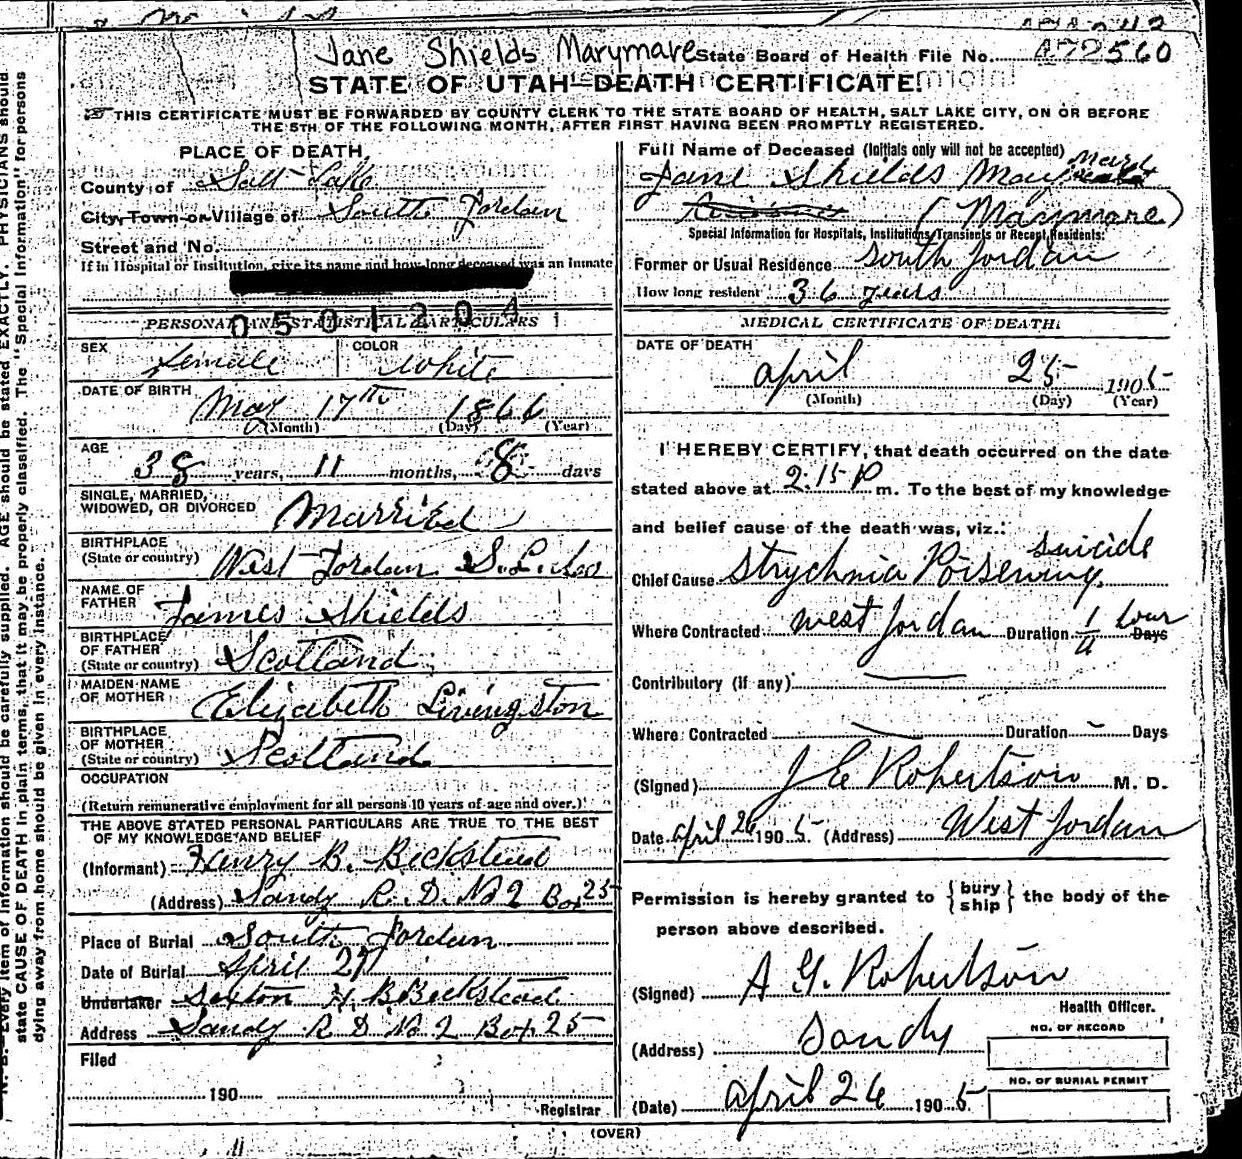 Jane Shields Marymare State Board of Health File No. 472560
STATE OF UTAH—DEATH CERTIFICATE.
THIS CERTIFICATE MUST BE FORWARDED BY COUNTY CLERK TO THE STATE BOARD OF HEALTH, SALT LAKE CITY, ON OR BEFORE
THE 5TH OF THE FOLLOWING MONTH, AFTER FIRST HAVING BEEN PROMPTLY REGISTERED.
PLACE OF DEATH
County of Salt Lake
City, Town or Village of South Jordan
Street and No.
If in Hospital or Institution, give its name and how long deceased was an inmate
0501204
PERSONAL AND STATISTICAL PARTICULARS
SEX Female COLOR White
DATE OF BIRTH May 17th 1866
(Month) (Day) (Year)
AGE 38 years, 11 months, 8 days
SINGLE, MARRIED,
WIDOWED, OR DIVORCED Married
BIRTHPLACE
(State or country) West Jordan S. L. Co
NAME OF
FATHER James Shields
BIRTHPLACE
OF FATHER
(State or country) Scotland
MAIDEN NAME
OF MOTHER Elizabeth Livingston
BIRTHPLACE
OF MOTHER
(State or country) Scotland
OCCUPATION
(Return remunerative employment for all persons 10 years of age and over.)
THE ABOVE STATED PERSONAL PARTICULARS ARE TRUE TO THE BEST
OF MY KNOWLEDGE AND BELIEF
(Informant) Henry B. Beckstead
(Address) Sandy R. D. No 2 Box 25
Place of Burial South Jordan
Date of Burial April 27
Undertaker Sexton H. B Beckstead
Address Sandy R D No 2 Box 25
Filed
190
Registrar
Full Name of Deceased (Initials only will not be accepted)
Jane Shields May
(Marymare)
Special Information for Hospitals, Institutions, Transients or Recent Residents:
Former or Usual Residence South Jordan
How long resident 36 years
MEDICAL CERTIFICATE OF DEATH.
DATE OF DEATH
April 25 1905
(Month) (Day) (Year)
I HEREBY CERTIFY, that death occurred on the date
stated above at 2:15 P m. To the best of my knowledge
and belief cause of the death was, viz.:
suicide
Chief Cause Strychnia Poisening
Where Contracted West Jordan Duration 1/4 hour Days
Contributory (if any)
Where Contracted Duration Days
(Signed) J E Robertson M. D.
Date April 26 1905. (Address) West Jordan
Permission is hereby granted to {bury ship} the body of the
person above described.
(Signed) A G. Robertson
Health Officer.
(Address) Sandy
NO. OF RECORD
NO. OF BURIAL PERMIT
(Date) April 26 1905
(OVER)
N. B.—Every item of information should be carefully supplied. AGE should be stated EXACTLY. PHYSICIANS should
state CAUSE OF DEATH in plain terms, that it may be properly classified. The "Special Information" for persons
dying away from home should be given in every instance.